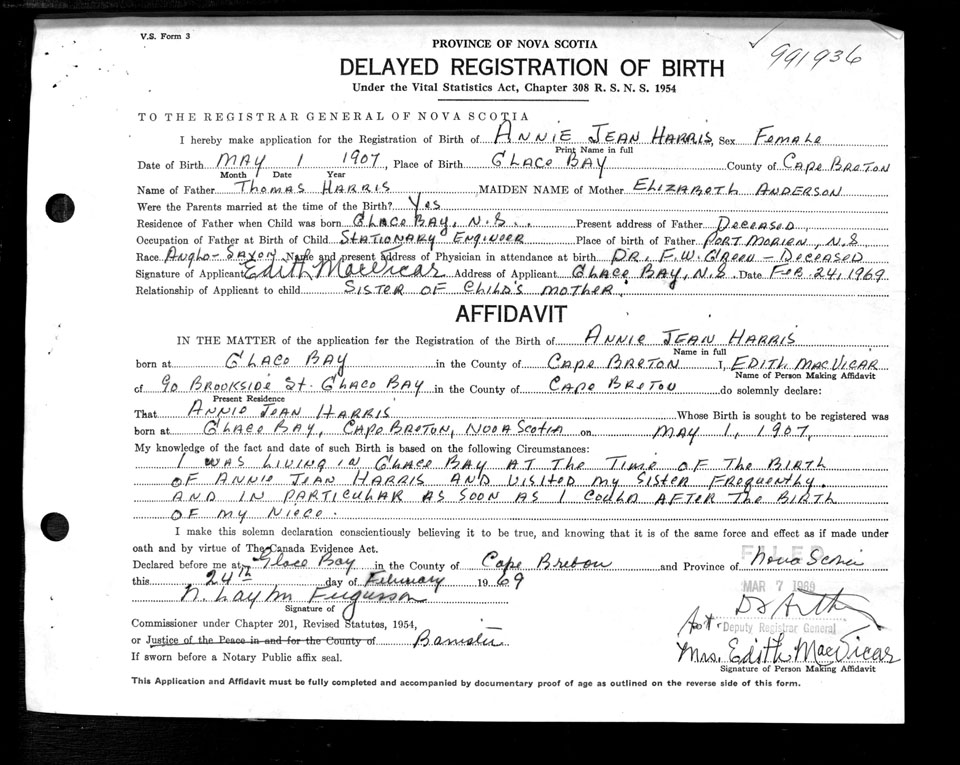 V.S. Form 3
991936
PROVINCE OF NOVA SCOTIA
DELAYED REGISTRATION OF BIRTH
Under the Vital Statistics Act, Chapter 308 R. S. N. S. 1954
TO THE REGISTRAR GENERAL OF NOVA SCOTIA
I hereby make application for the Registration of Birth of ANNIE JEAN HARRIS, Sex FEMALE
Print Name in full
Date of Birth MAY 1 1907, Place of Birth GLACE BAY County of CAPE BRETON
Month Date Year
Name of Father THOMAS HARRIS MAIDEN NAME of Mother ELIZABETH ANDERSON
Were the Parents married at the time of the Birth? YES
Residence of Father when Child was born GLACE BAY, N.S. Present address of Father DECEASED
Occupation of Father at Birth of Child STATIONARY ENGINEER Place of birth of Father PORT MORIEN, N.S
Race ANGLO-SAXON Name and present Address of Physician in attendance at birth DR. F.W. GREEN - DECEASED
Signature of Applicant Edith MacVicar Address of Applicant GLACE BAY, N.S. Date FEB. 24, 1969
Relationship of Applicant to child SISTER OF CHILD'S MOTHER.
AFFIDAVIT
IN THE MATTER of the application for the Registration of the Birth of ANNIE JEAN HARRIS
Name in full
born at GLACE BAY in the County of CAPE BRETON I, EDITH MACVICAR
Name of Person Making Affidavit
of 90 BROOKSIDE ST. GLACE BAY in the County of CAPE BRETON do solemnly declare:
Present Residence
That ANNIE JEAN HARRIS Whose Birth is sought to be registered was
born at GLACE BAY, CAPE BRETON, NOVA SCOTIA on MAY 1, 1907,
My knowledge of the fact and date of such Birth is based on the following Circumstances:
I WAS LIVING IN GLACE BAY AT THE TIME OF THE BIRTH
OF ANNIE JEAN HARRIS AND VISITED MY SISTER FREQUENTLY.
AND IN PARTICULAR AS SOON AS I COULD AFTER THE BIRTH
OF MY NIECE.
I make this solemn declaration conscientiously believing it to be true, and knowing that it is of the same force and effect as if made under
oath and by virtue of The Canada Evidence Act.
FILED
Declared before me at Glace Bay in the County of Cape Breton and Province of Nova Scotia
this 24th day of February 1969
MAR 7 1969
Fergusson
Signature of
Commissioner under Chapter 201, Revised Statutes, 1954,
Deputy Registrar General
or Justice of the Peace in and for the County of Barrister
Mrs. Edith MacVicar
If sworn before a Notary Public affix seal.
Signature of Person Making Affidavit
This Application and Affidavit must be fully completed and accompanied by documentary proof of age as outlined on the reverse side of this form.